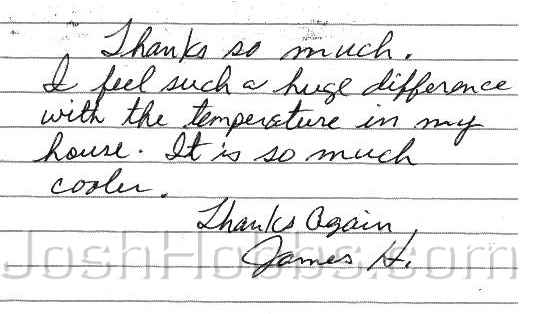 Thanks so much.
I feel such a huge difference
with the temperature in my
house. It is so much
cooler.
Thanks Again
James H.
JoshHobbs.com